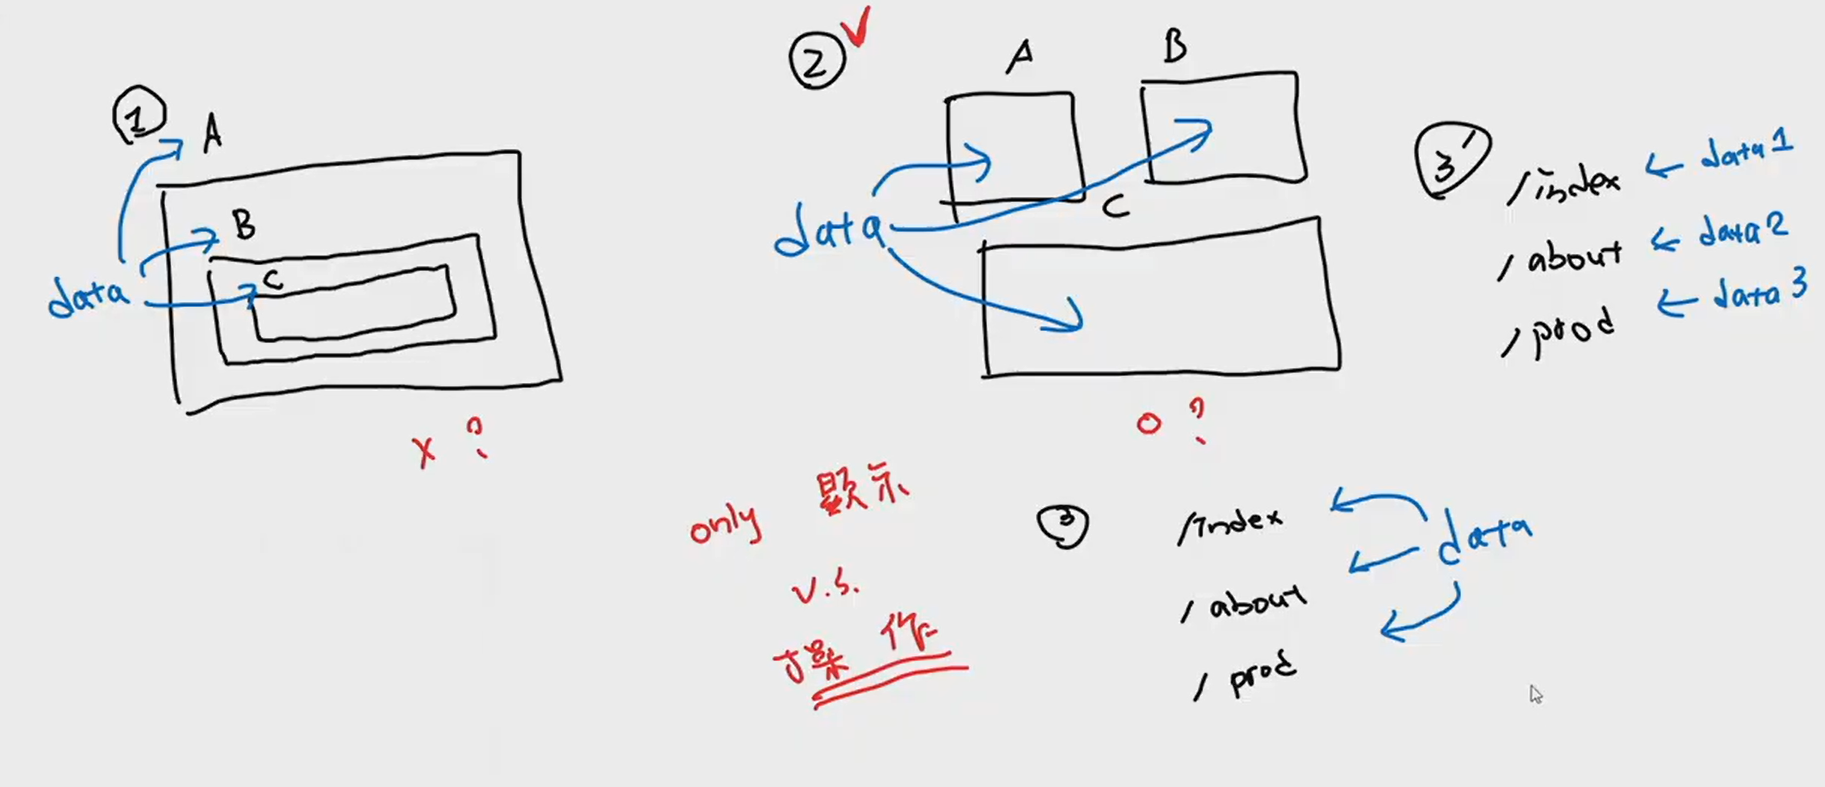 1
A
B
C
data
X ?
2 V
A
B
C
data
O ?
3'
/index ← data1
/about ← data2
/prod ← data3
only 顯示
v.s.
操作
3
/index
/about
/prod
data